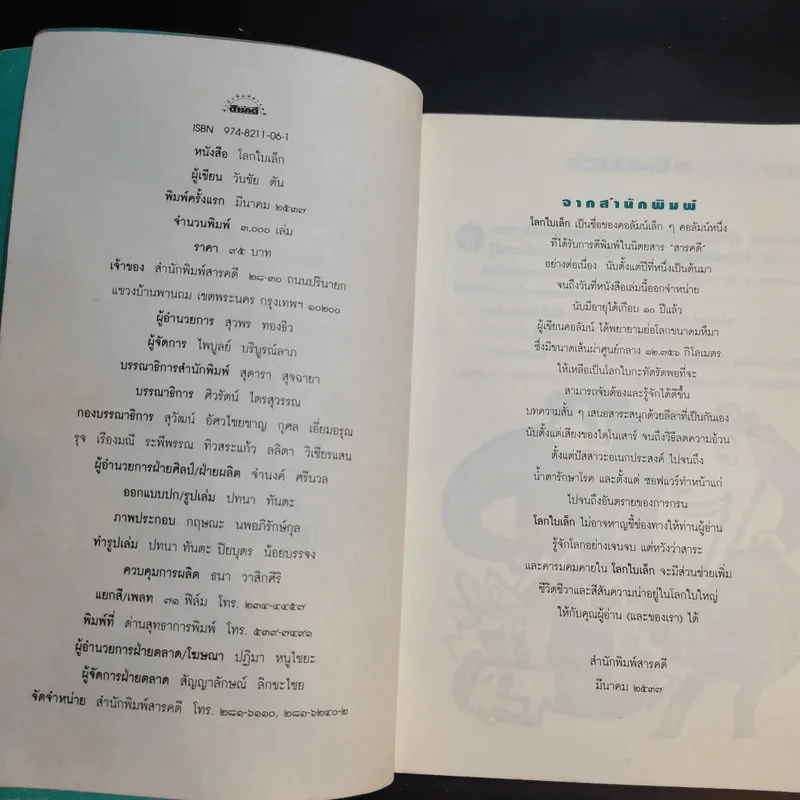 สารคดี
ISBN 974-8211-06-1
หนังสือ โลกใบเล็ก
ผู้เขียน วันชัย ตัน
พิมพ์ครั้งแรก มีนาคม ๒๕๓๗
จำนวนพิมพ์ ๓,๐๐๐ เล่ม
ราคา ๙๕ บาท
เจ้าของ สำนักพิมพ์สารคดี ๒๘-๓๐ ถนนปรินายก
แขวงบ้านพานถม เขตพระนคร กรุงเทพฯ ๑๐๒๐๐
ผู้อำนวยการ สุวพร ทองธิว
ผู้จัดการ ไพบูลย์ บริบูรณ์ลาภ
บรรณาธิการสำนักพิมพ์ สุดารา สุจฉายา
บรรณาธิการ ศิวรัตน์ ไตรสุวรรณ
กองบรรณาธิการ สุวัฒน์ อัศวไชยชาญ กุศล เอี่ยมอรุณ
รุจ เรืองมณี ระพีพรรณ ทิวสระแก้ว ลลิตา วิเชียรแสน
ผู้อำนวยการฝ่ายศิลป์/ฝ่ายผลิต จำนงค์ ศรีนวล
ออกแบบปก/รูปเล่ม ปทนา ทันตะ
ภาพประกอบ กฤษณะ นพอภิรักษ์กุล
ทำรูปเล่ม ปทนา ทันตะ ปิยบุตร น้อยบรรจง
ควบคุมการผลิต ธนา วาสิกศิริ
แยกสี/เพลท ๗๑ ฟิล์ม โทร. ๒๓๔-๔๔๕๗
พิมพ์ที่ ด่านสุทธาการพิมพ์ โทร. ๕๓๙-๓๔๙๑
ผู้อำนวยการฝ่ายตลาด/โฆษณา ปฏิมา หนูไชยะ
ผู้จัดการฝ่ายตลาด สัญญาลักษณ์ ลิกขะไชย
จัดจำหน่าย สำนักพิมพ์สารคดี โทร. ๒๘๑-๖๑๑๐, ๒๘๑-๖๒๔๐-๒
จากสำนักพิมพ์
โลกใบเล็ก เป็นชื่อของคอลัมน์เล็ก ๆ คอลัมน์หนึ่ง
ที่ได้รับการตีพิมพ์ในนิตยสาร "สารคดี"
อย่างต่อเนื่อง นับตั้งแต่ปีที่หนึ่งเป็นต้นมา
จนถึงวันที่หนังสือเล่มนี้ออกจำหน่าย
นับมีอายุได้เกือบ ๑๐ ปีแล้ว
ผู้เขียนคอลัมน์ ได้พยายามย่อโลกขนาดมหึมา
ซึ่งมีขนาดเส้นผ่าศูนย์กลาง ๑๒,๗๕๖ กิโลเมตร
ให้เหลือเป็นโลกใบกะทัดรัดพอที่จะ
สามารถจับต้องและรู้จักได้ดีขึ้น
บทความสั้น ๆ เสนอสาระสนุกด้วยลีลาที่เป็นกันเอง
นับตั้งแต่เสียงของไดโนเสาร์ จนถึงวิธีลดความอ้วน
ตั้งแต่ปัสสาวะอเนกประสงค์ ไปจนถึง
น้ำตารักษาโรค และตั้งแต่ ซอฟแวร์ทำหน้าแก่
ไปจนถึงอันตรายของการกรน
โลกใบเล็ก ไม่อาจหาญชี้ช่องทางให้ท่านผู้อ่าน
รู้จักโลกอย่างเจนจบ แต่หวังว่าสาระ
และคารมคมคายใน โลกใบเล็ก จะมีส่วนช่วยเพิ่ม
ชีวิตชีวาและสีสันความน่าอยู่ในโลกใบใหญ่
ให้กับคุณผู้อ่าน (และของเรา) ได้
สำนักพิมพ์สารคดี
มีนาคม ๒๕๓๗